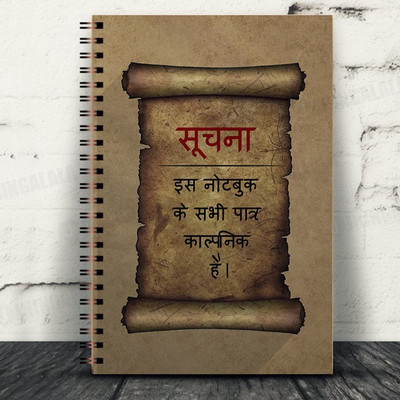 सूचना
इस नोटबुक
के सभी पात्र
काल्पनिक
हैं।